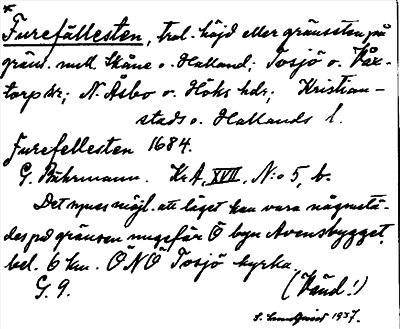 *
Furefällesten, trol. höjd eller gränssten på
gräns. mell. Skåne o. Halland; Tosjö o. Våx-
torp snr; N. Åsbo o. Höks hdr; Kristian-
stads o. Hallands l.
Furefellesten 1684.
G. Buhrmann. KrA, XVII, N:o 5, b.
Det synes möjl. att läget kan vara någonstä-
des på gränsen ungefär Ö byn Avensbygget,
bel. 6 km. ÖNÖ Tosjö kyrka.
G. 9. (Vänd!)
1937.